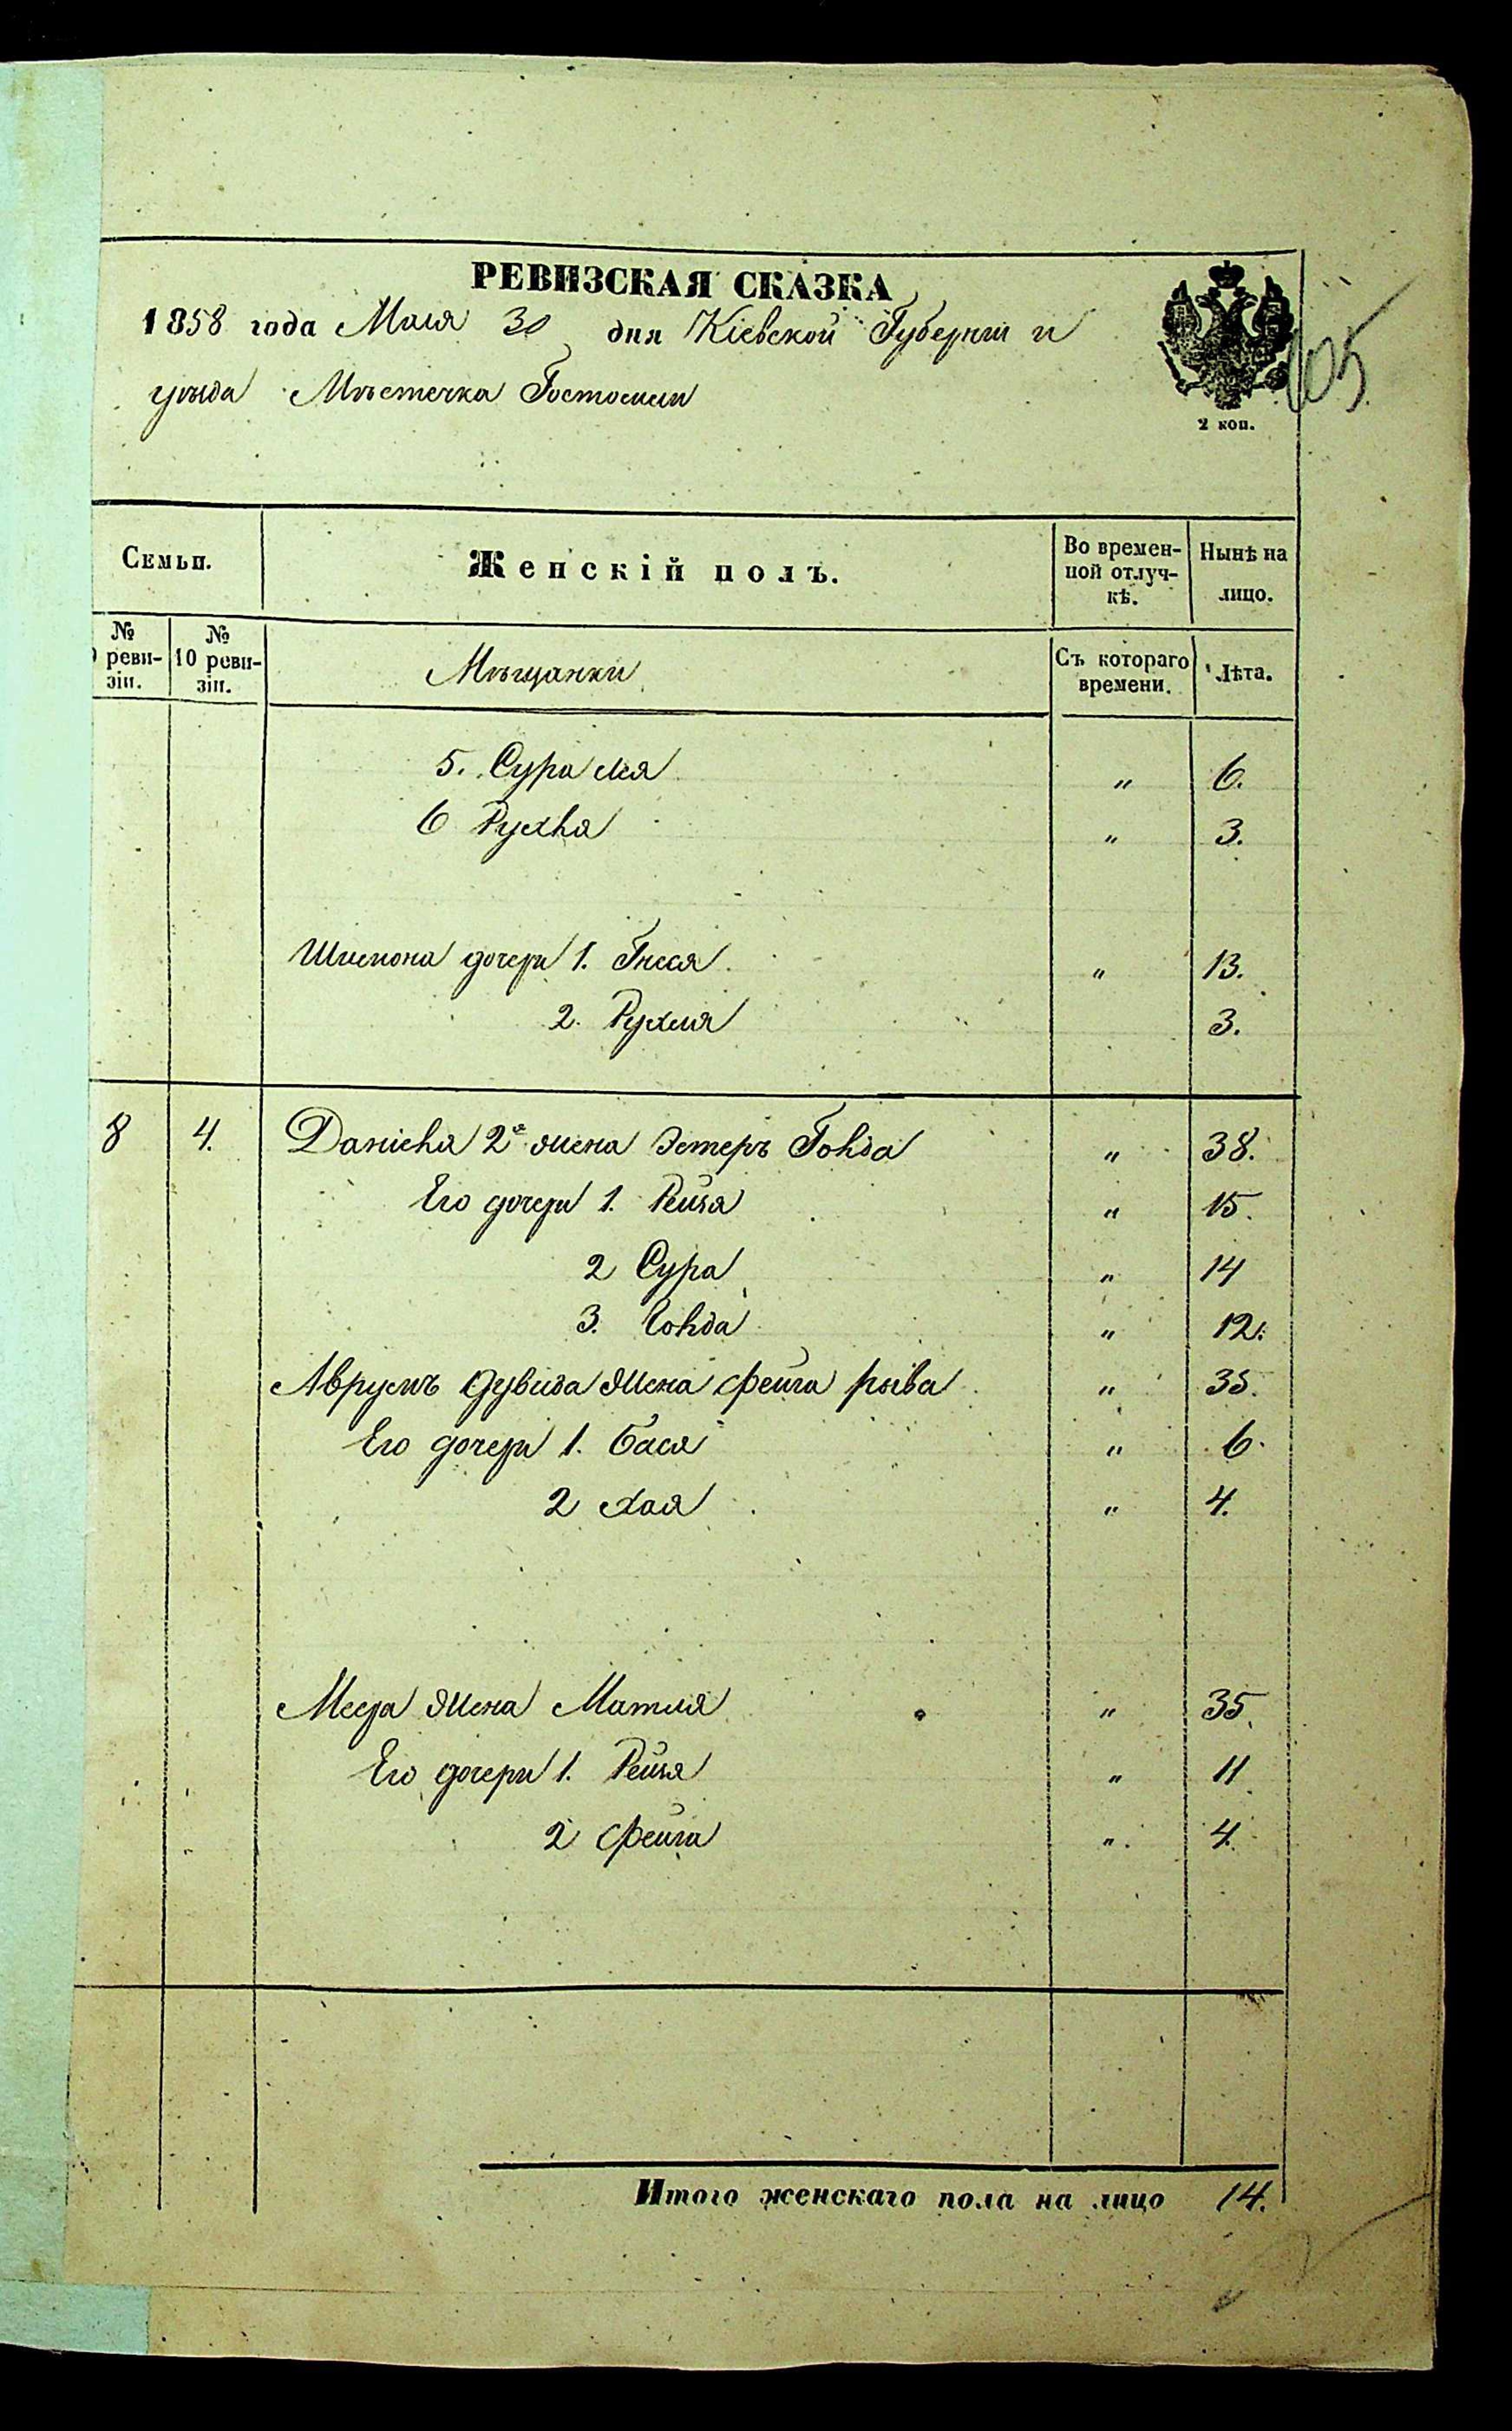 РЕВИЗСКАЯ СКАЗКА
1858 года Маія 30 дня Кіевской Губерніи и
уѣзда Мѣстечка Гостомля
2 коп.
105
Семьи.
Женскій полъ.
Во времен-
ной отлуч-
кѣ.
Нынѣ на
лицо.
№
реви-
зіи.
№
10 реви-
зіи.
Мѣщанки
Съ котораго
времени.
Лѣта.
5. Сура Лея " 6.
6 Рухля " 3.
Шимона дочери 1. Гнеся " 13.
2. Рухля 3.
8 4. Даніеля 2я жена Эстеръ Голда " 38.
Его дочери 1. Рейза " 15.
2 Сура " 14
3. Голда " 12.
Аврумъ Дувида жена Фейга рыва " 35.
Его дочери 1. Бася " 6.
2 Хая " 4.
Меера жена Матля " 35.
Его дочери 1. Рейзя " 11
2 Фейга " 4.
Итого женскаго пола на лицо 14.